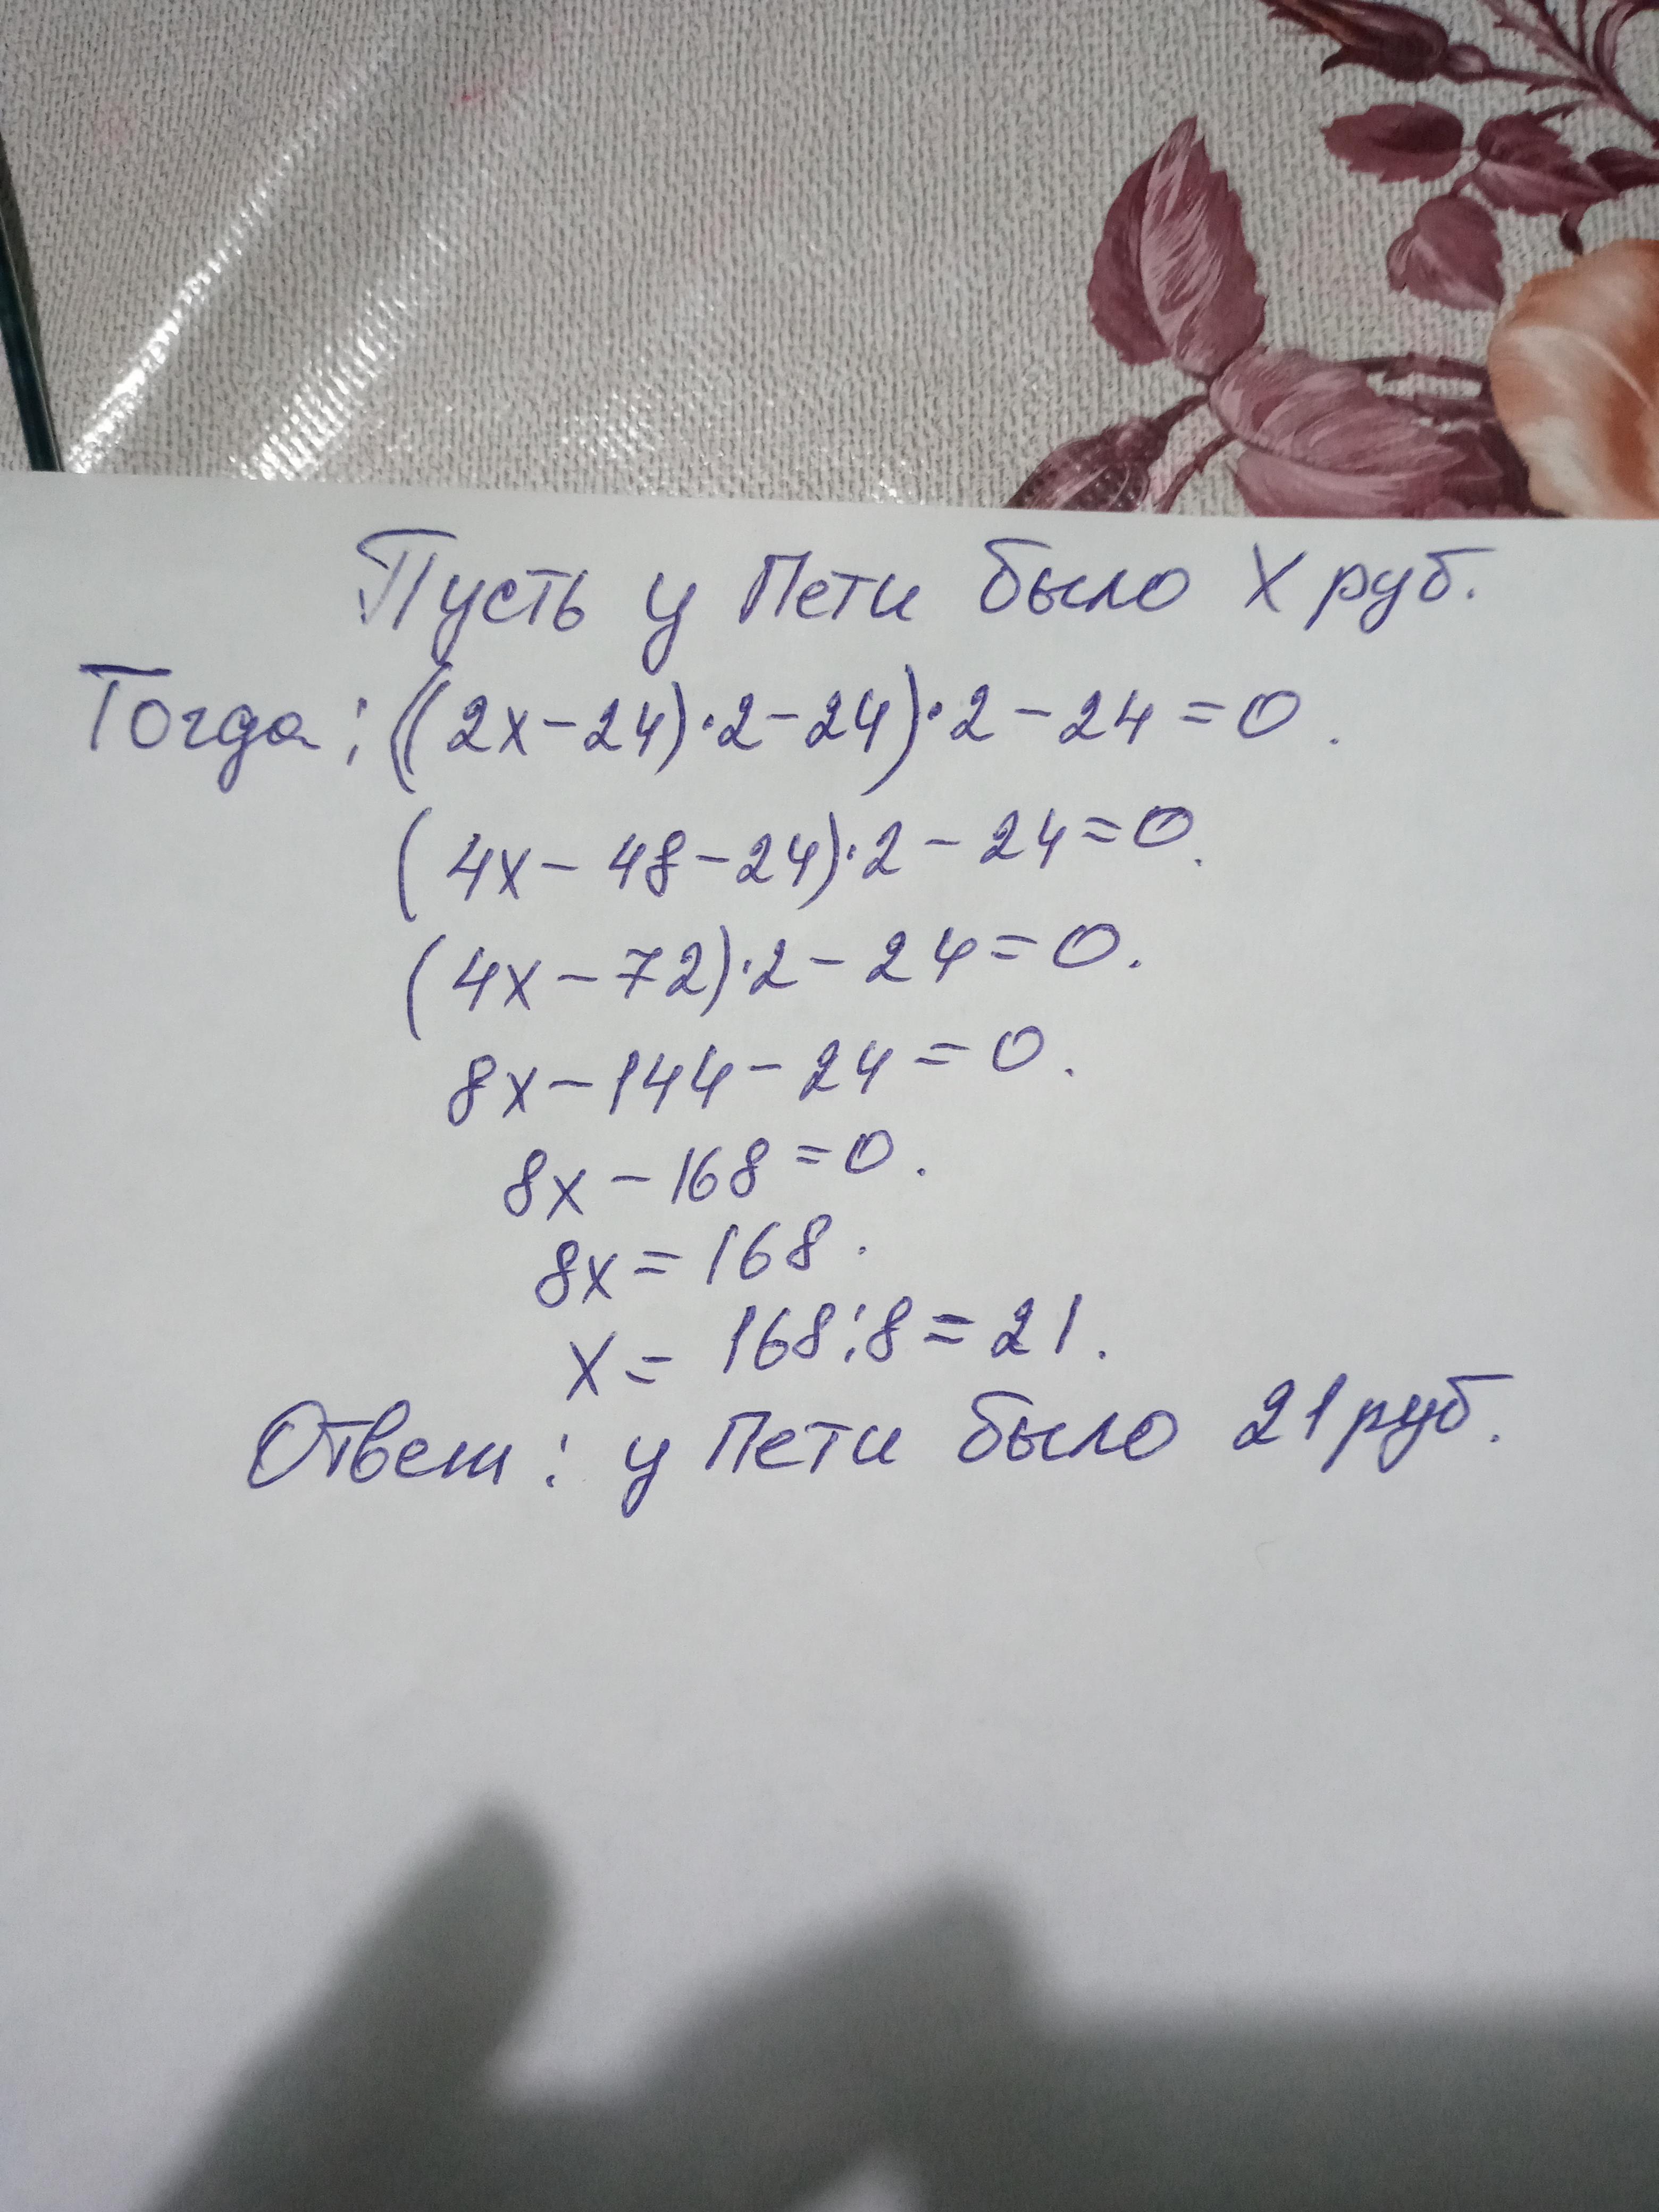 Пусть у Пети было x руб.
Тогда: ((2x-24)·2-24)·2-24=0.
(4x-48-24)·2-24=0.
(4x-72)·2-24=0.
8x-144-24=0.
8x-168=0.
8x=168.
x=168:8=21.
Ответ: у Пети было 21 руб.